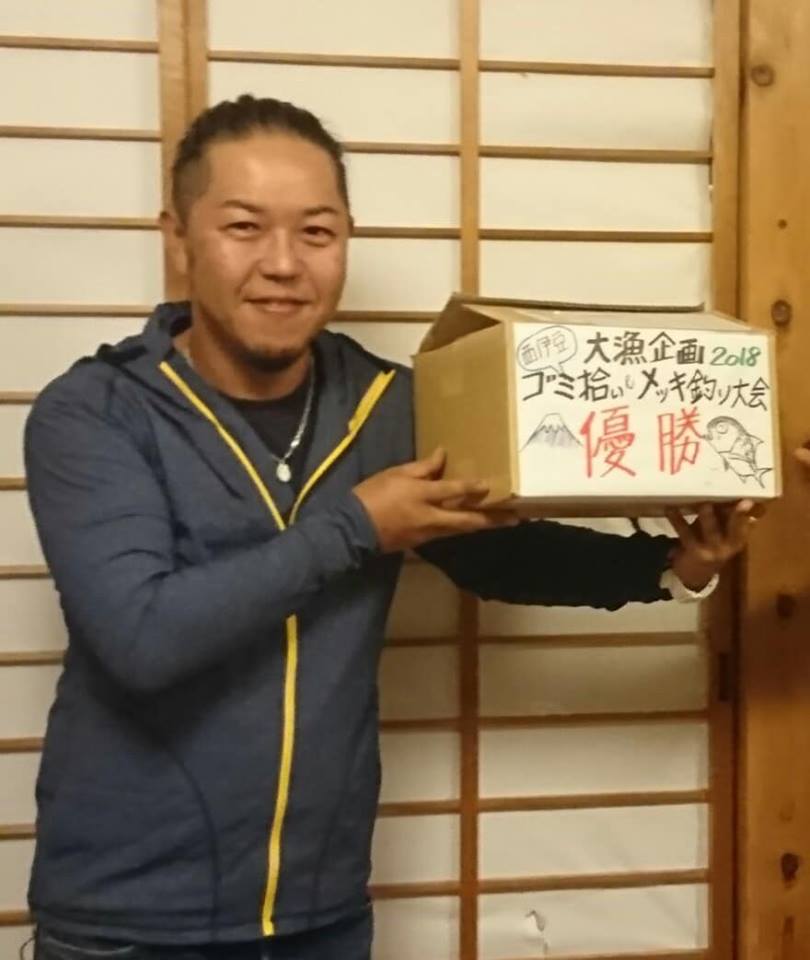 西伊豆 大漁企画 2018
ゴミ拾い&メッキ釣り大会
優勝